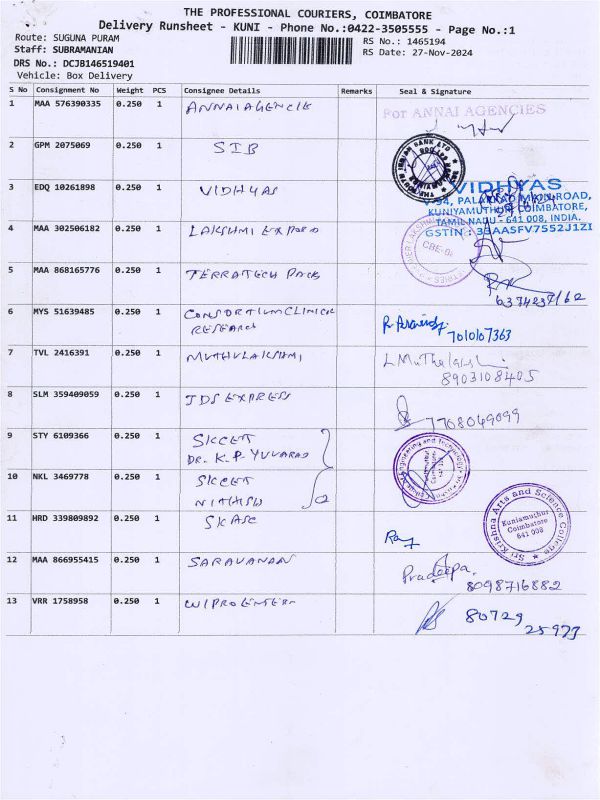 THE PROFESSIONAL COURIERS, COIMBATORE
Delivery Runsheet - KUNI - Phone No.:0422-3505555 - Page No.:1
Route: SUGUNA PURAM
RS No.: 1465194
Staff: SUBRAMANIAN
RS Date: 27-Nov-2024
DRS No.: DCJB146519401
Vehicle: Box Delivery
S No Consignment No Weight PCS Consignee Details Remarks Seal & Signature
1 MAA 576390335 0.250 1 ANNAI AGENCIE
For ANNAI AGENCIES
2 GPM 2075069 0.250 1 SIB
3 EDQ 10261898 0.250 1 VIDHYAS
VIDHYAS
V-94, PALAKKAD MAIN ROAD,
KUNIYAMUTHUR, COIMBATORE,
TAMIL NADU - 641 008, INDIA.
GSTIN : 33AASFV7552J1ZI
4 MAA 302506182 0.250 1 LAKSHMI EXPORO
CBE-
5 MAA 868165776 0.250 1 TERRATECH PACK
6374237162
6 MYS 51639485 0.250 1 CONSORTIUM CLINICAL
RESEARCH
7010107363
7 TVL 2416391 0.250 1 MUTHULAKSHMI
L Muthulakshmi
8903108405
8 SLM 359409059 0.250 1 JDS EXPRESS
7708049099
9 STY 6109366 0.250 1 SKCET
DR. K. P. YUVARAJ
Engineering and Technology
10 NKL 3469778 0.250 1 SKCET
NITHISH
11 HRD 339809892 0.250 1 SKASC
Sri Krishna Arts and Science College
Kuniamuthur
Coimbatore
641 008
12 MAA 866955415 0.250 1 SARAVANAN
Pradeepa.
8098716882
13 VRR 1758958 0.250 1 WIPRO ENTER
80729
25973